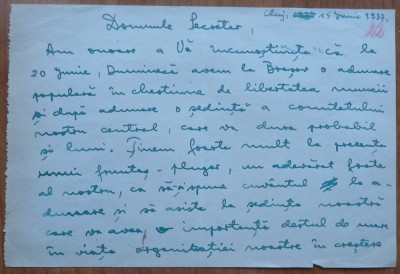 Cluj, 15 Junie 1937.
Domnule Secretar,
Am onoare a Vă încunoștiința că, la
20 Junie, Duminecă avem la Brașov o adunare
populară în chestiunea de libertatea muncii
și după adunare o ședință a comitetului
nostru central, care va dura probabil
și luni. Ținem foarte mult la prezența
unui fruntaș - plugar, un adevărat
al nostru, ca să-și spune cuvântul la a-
dunare și să asiste la ședința noastră
care va avea o importanță destul de mare
în viața organizației noastre în creștere